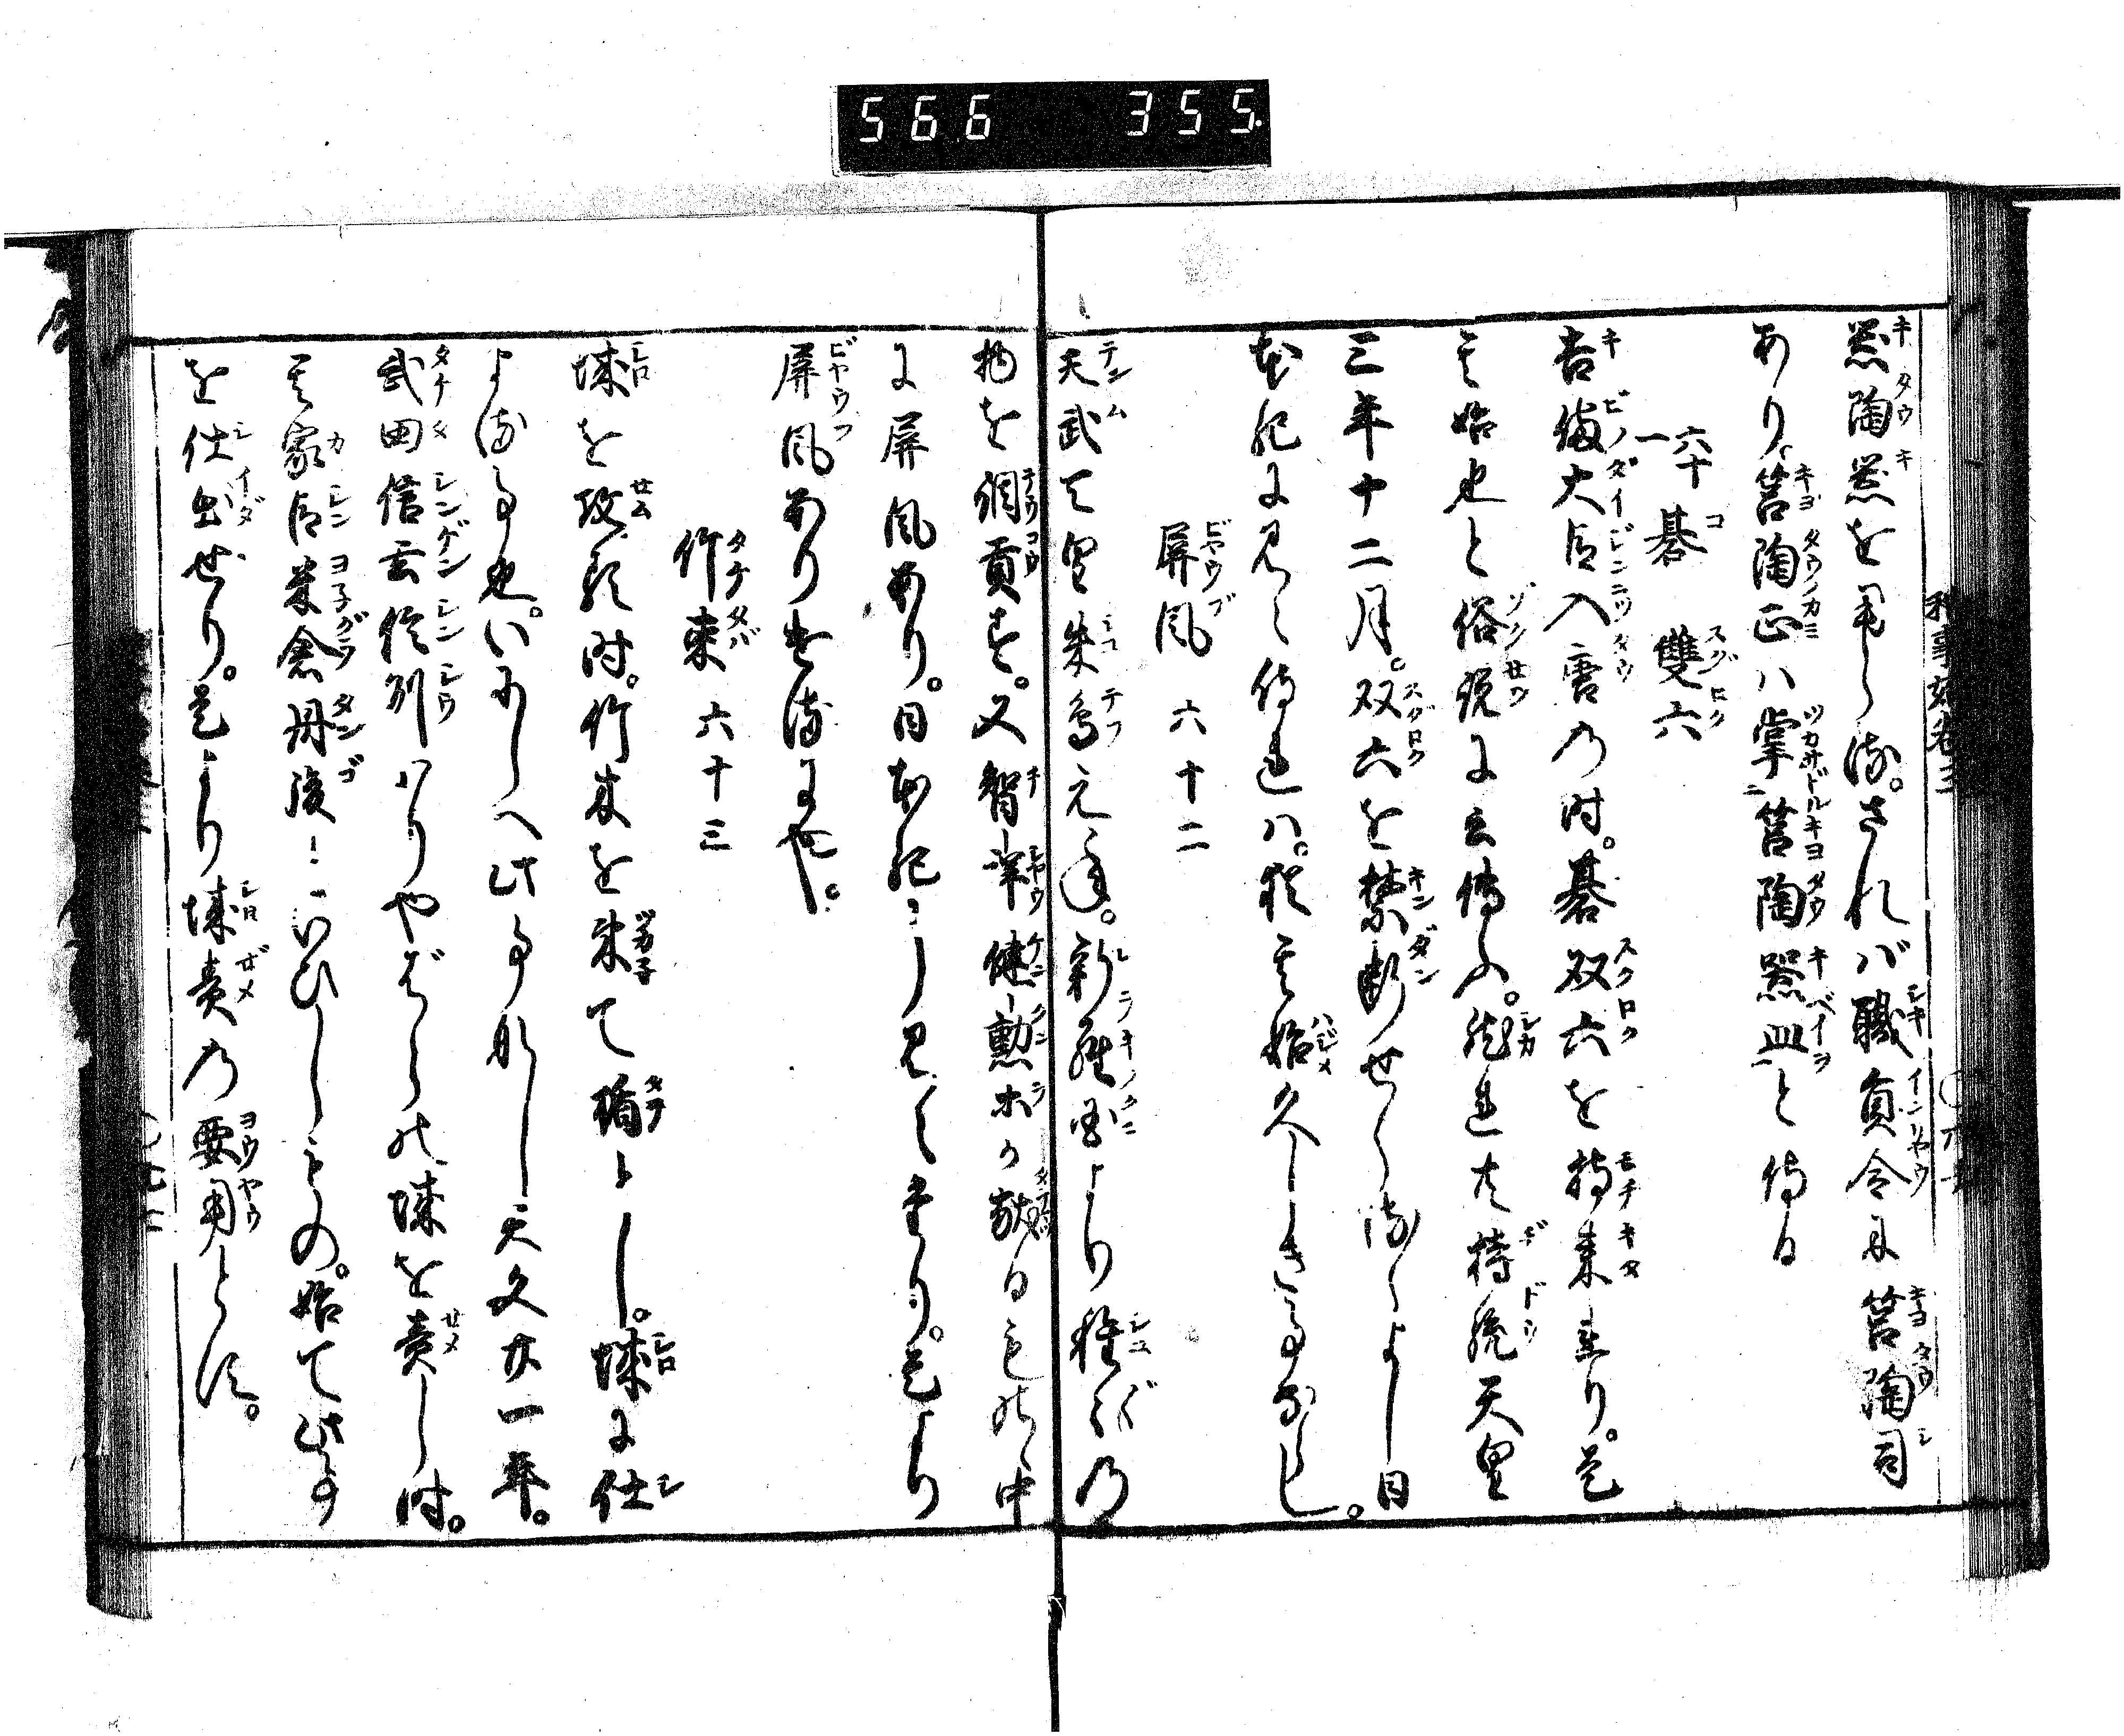 566 355.
器陶器を用らる。されバ職員令に筥陶司
あり。筥陶正ハ掌筥陶器皿と侍る
六十一 碁 雙六
吉備大臣入唐の時。碁双六を持来れり。是
其始也と俗説に云傳ふ。然れ共持統天皇
三年十二月。双六を禁断せらるゝよし日
本紀に見え侍れハ。猶其始久しき事なるべし。
屏風 六十二
天武天皇朱鳥元年。新羅国より種々の
物を調貢す。又智祥健勲ホか献る物の中
に屏風あり。日本紀に見えたり。是より
屏風あり
竹束 六十三
城を攻る時。竹木を束て楯とし。城に仕
よる事也。いにしへ此事なし天文廿一年。
武田信玄信州かりやばらの城を責し時。
其家臣米倉丹後といひしもの。始て此事
を仕出せり。是より城責の要用とす。